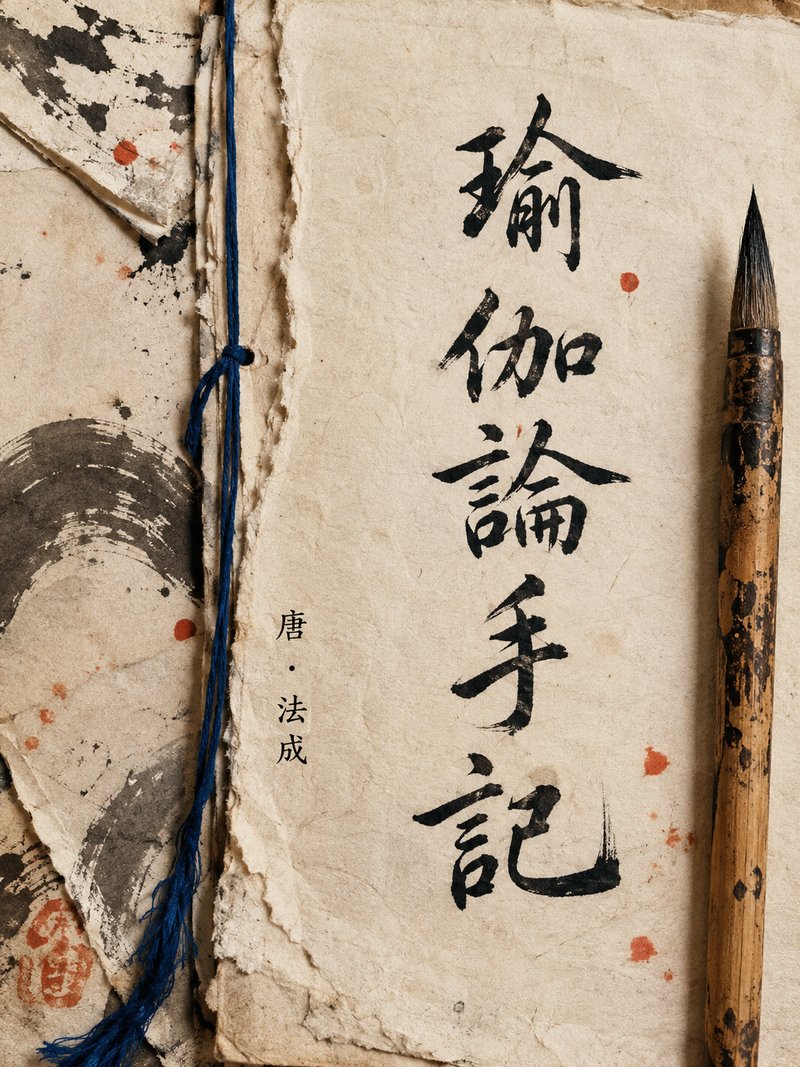 瑜伽論手記
唐·法成